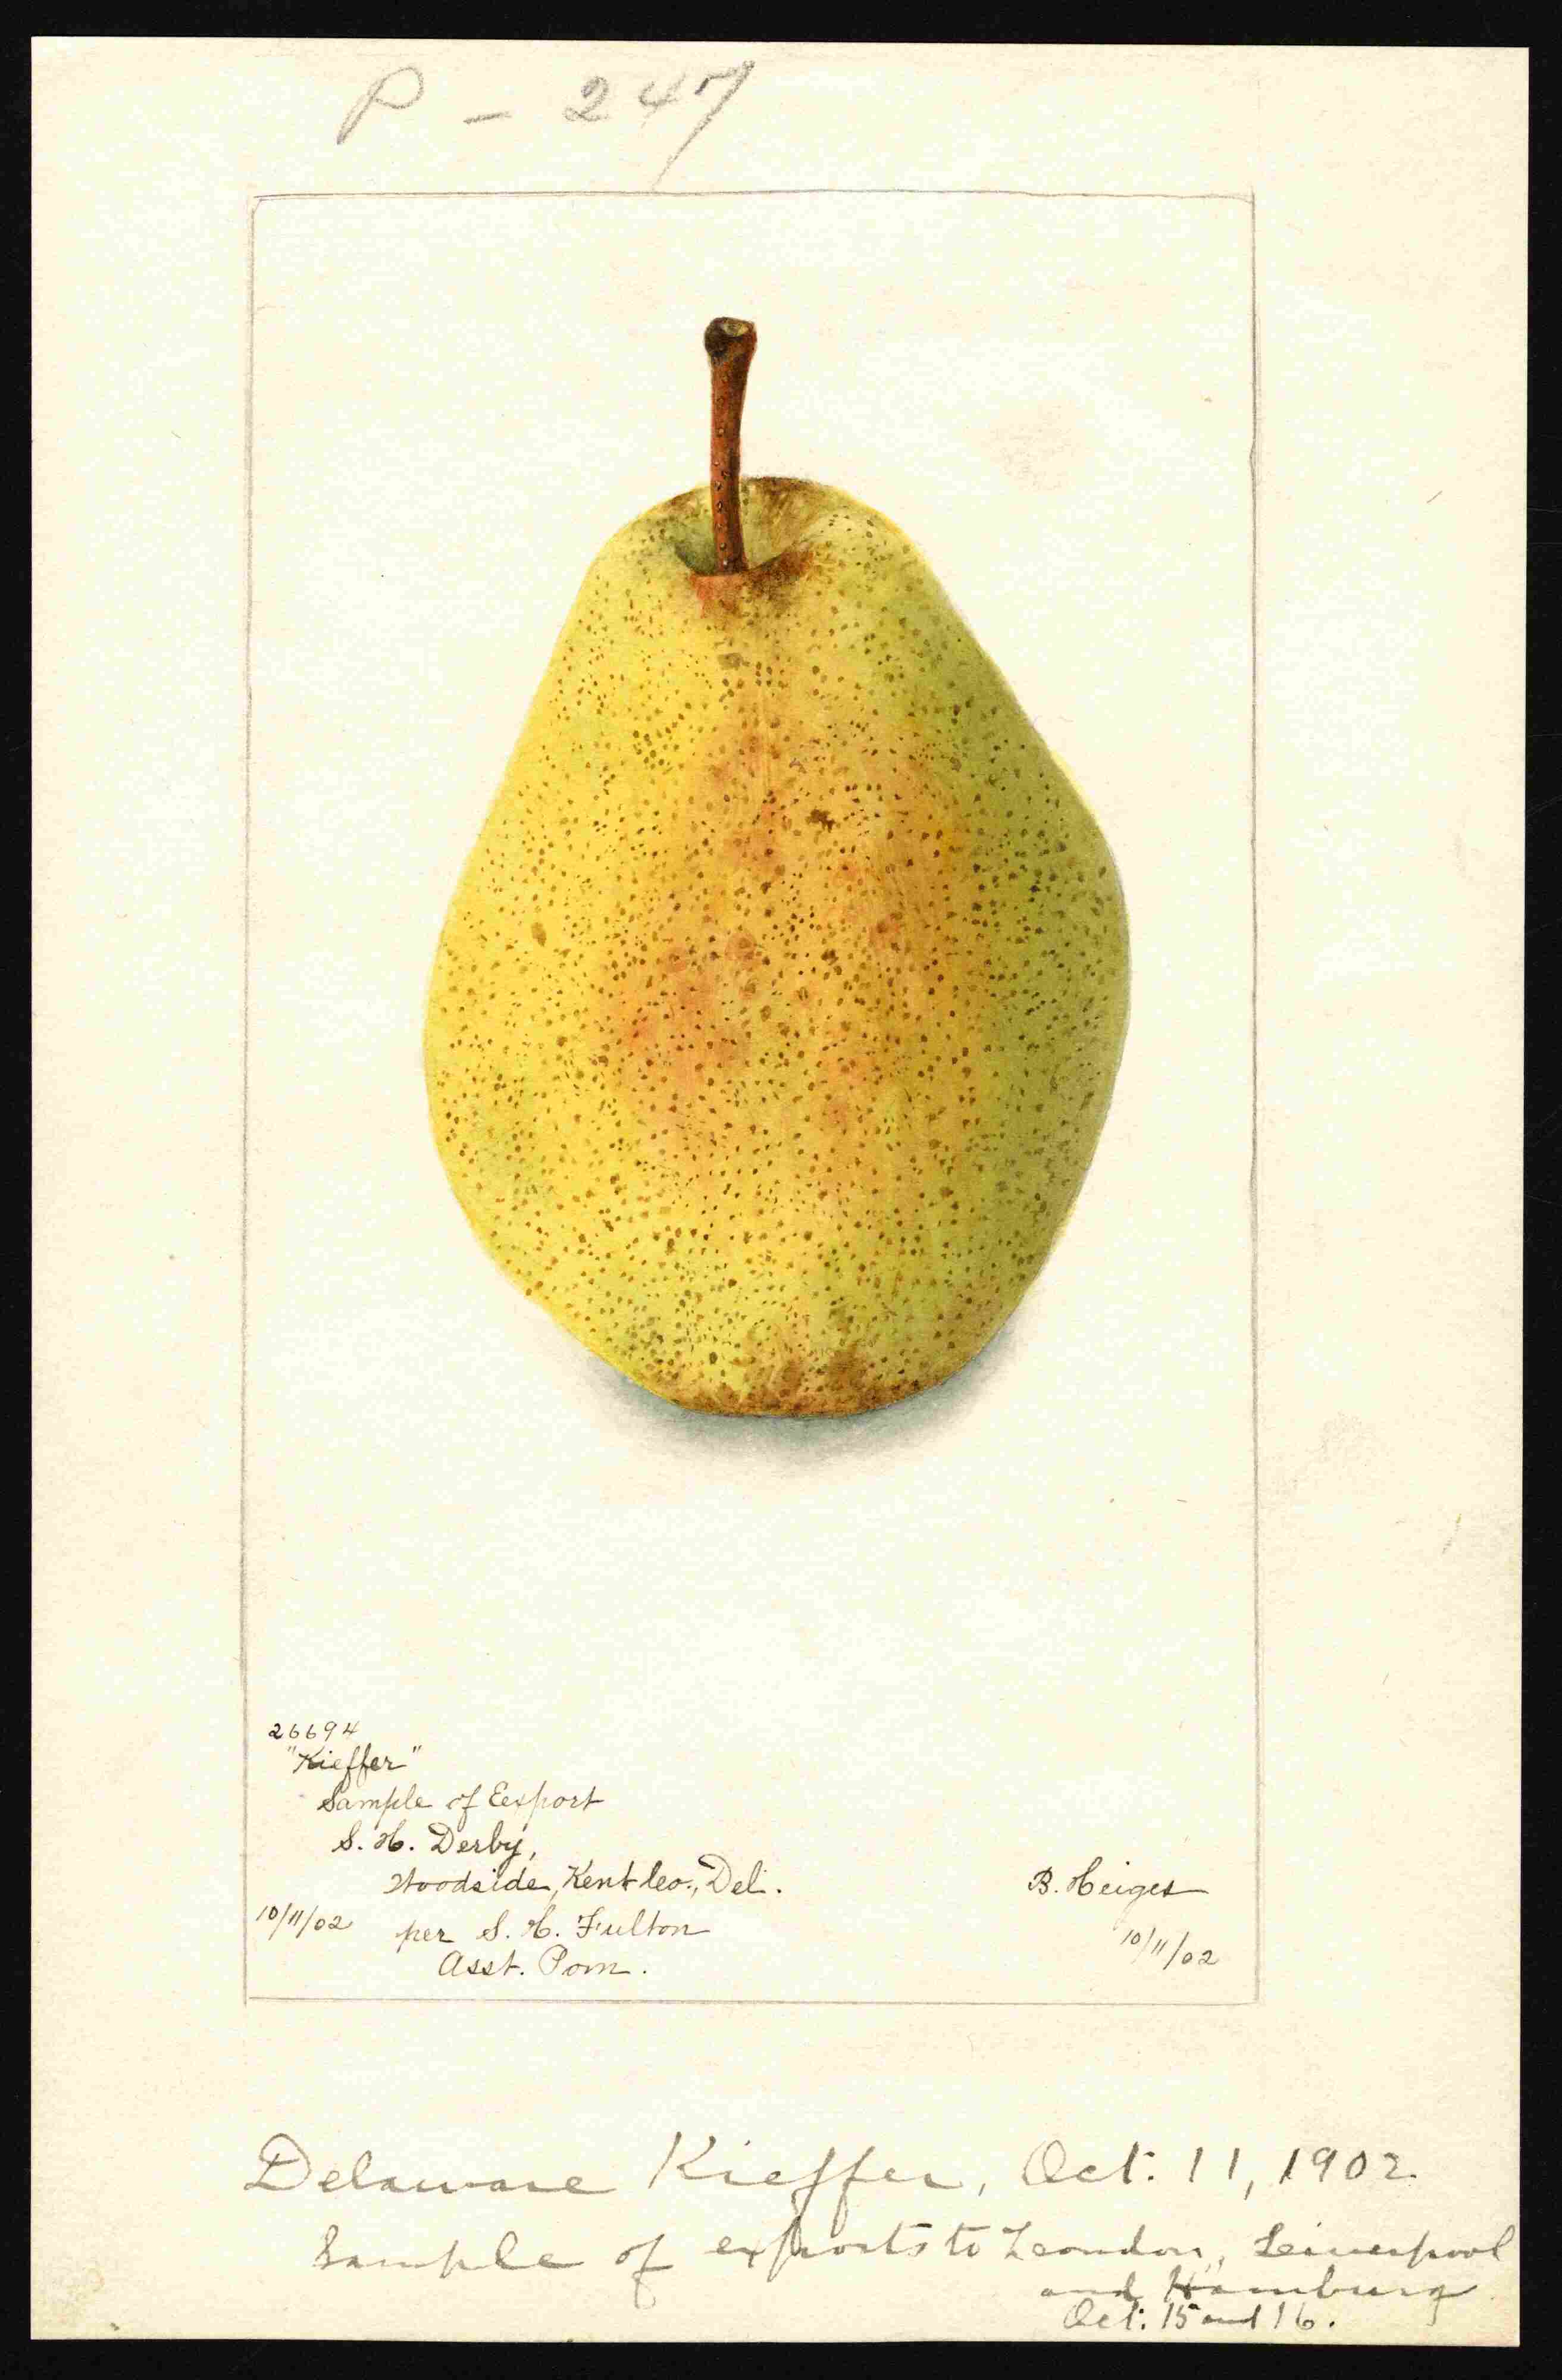 P - 247
26694
"Kieffer"
Sample of Export
S. H. Derby,
Woodside, Kent Co., Del.
10/11/02 per S. H. Fulton
Asst. Pom.
B. Heiges
10/11/02
Delaware Kieffer, Oct. 11, 1902.
Sample of exports to London, Liverpool
and Hamburg
Oct. 15 and 16.